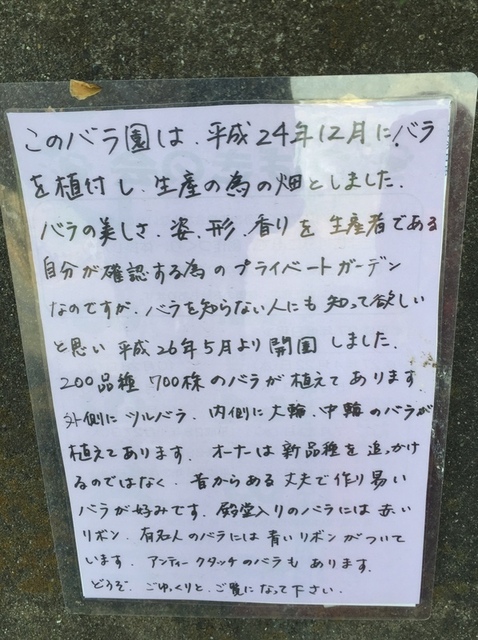 このバラ園は、平成24年12月に、バラ
を植付し、生産の為の畑としました、
バラの美しさ、姿、形、香りを生産者である
自分が確認する為のプライベートガーデン
なのですが、バラを知らない人にも知って欲しい
と思い平成26年5月より開園しました、
200品種700株のバラが植えてあります、
外側にツルバラ、内側に大輪、中輪のバラが
植えてあります、オーナーは新品種を追っかけ
るのではなく、昔からある丈夫で作り易い
バラが好みです、殿堂入りのバラには赤い
リボン、有名人のバラには青いリボンがついて
います、アンティークタッチのバラもあります、
どうぞ、ごゆっくりと、ご覧になって下さい、